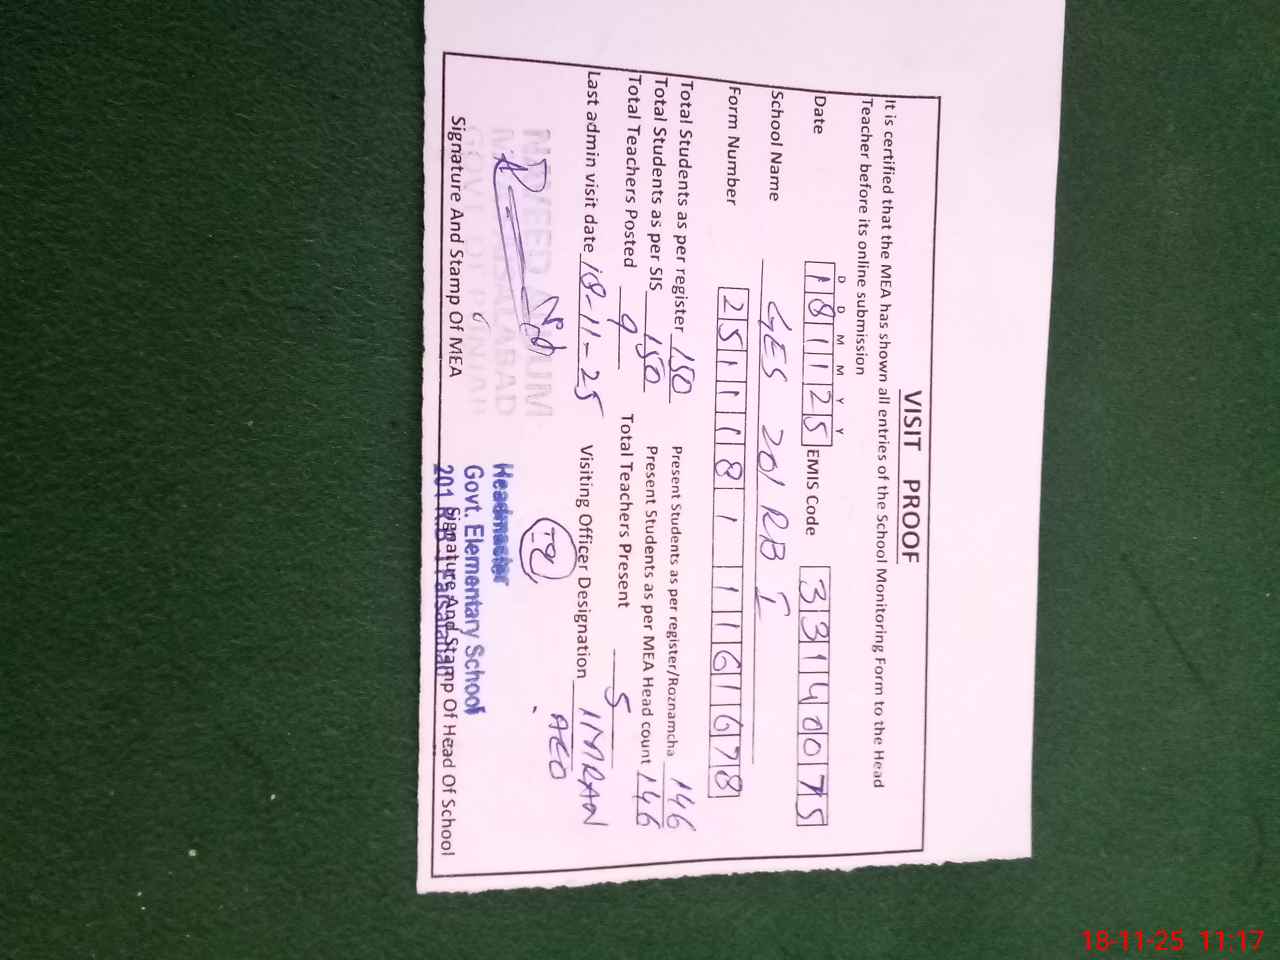 VISIT PROOF
It is certified that the MEA has shown all entries of the School Monitoring Form to the Head
Teacher before its online submission
D D M M Y Y
Date 181125 EMIS Code 33140075
School Name GES 201 RB I
Form Number 2511181 1161678
Total Students as per register 150 Present Students as per register/Roznamcha 146
Total Students as per SIS 150 Present Students as per MEA Head count 146
Total Teachers Posted 9 Total Teachers Present 5
Last admin visit date 18-11-25 Visiting Officer Designation IMRAN
AEO
Headmaster
Govt. Elementary School
201 R.B
Signature And Stamp Of MEA Signature And Stamp Of Head Of School
18-11-25 11:17